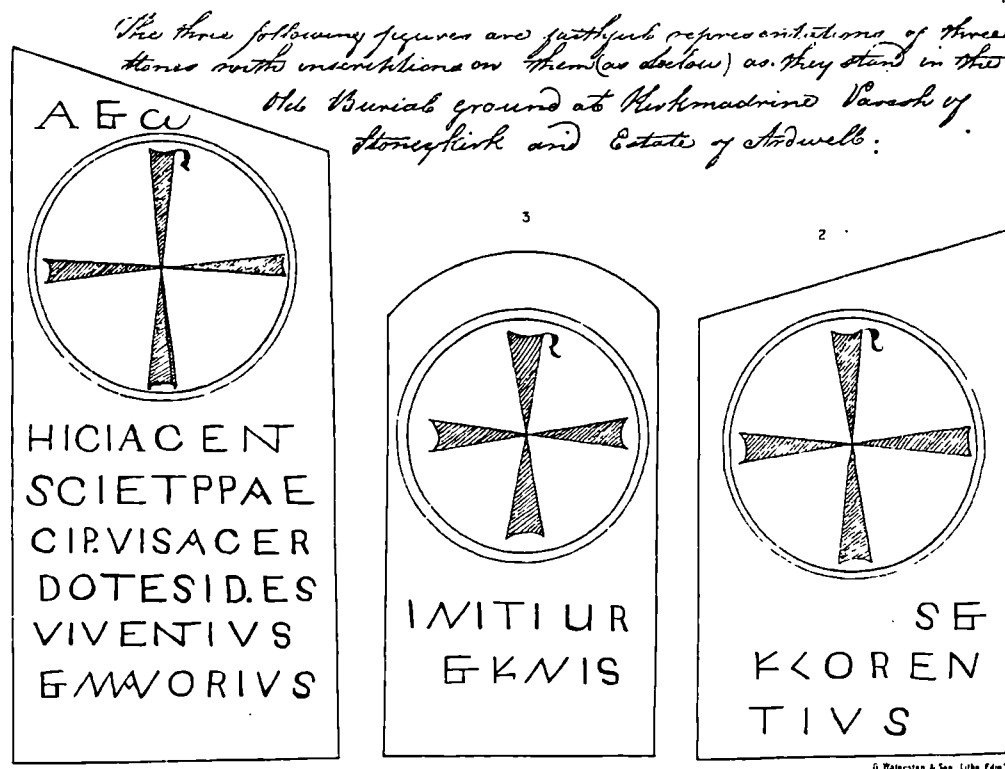 The three following figures are faithful representations of three
stones with inscriptions on them (as below) as they stand in the
Old Burial ground at Kirkmadrine Parish of
Stoneykirk and Estate of Ardwell:
A & ω
HICIACENT
SCIETPPAE
CIP.VISACER
DOTESID.ES
VIVENTIVS
&MAVORIVS
3
INITIUR
&FNIS
2
S&
FLOREN
TIVS
G. Waterston & Son, Litho. Edin.